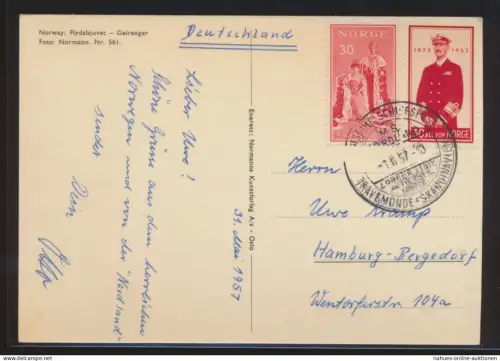 Norway: Flydalsjuvet – Geiranger
Foto: Normann. Nr. 561.
Deutschland
Lieber Uwe!
Schöne Grüsse aus dem herrlichen
Norwegen und von der "Nordland"
sendet
Dein
Enerett: Normanns Kunstforlag A/s - Oslo
31. Mai 1957
NORGE
30
1872 1952
30 ALT FOR NORGE
DEUTSCHE SCHIFFSPOST
M.S.
-1.6.57.-10
TRAVEMÜNDE - SKANDINAVIEN
Herrn
Uwe
Hamburg-Bergedorf
Wentorferstr. 104a
www.nahues-online-antiques.com